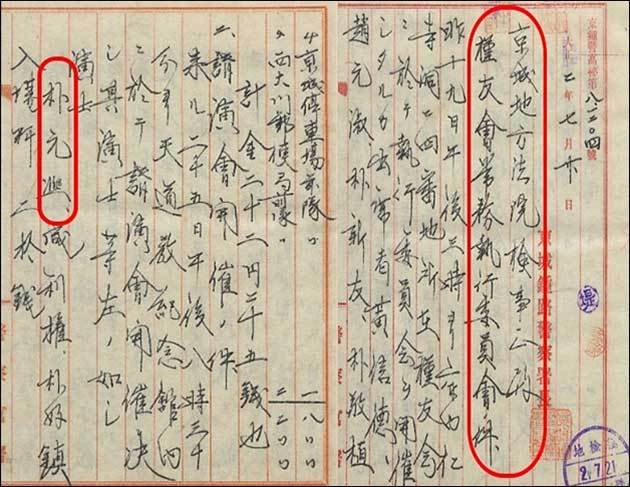 京鍾警高秘第八二〇四號
二年七月廿日
京城鍾路警察署長
京城地方法院検事正殿
槿友會常務執行委員會ノ件
昨十九日午後三時ヨリ市内仁
寺洞一四番地所在槿友會
ニ於テ執行委員会ヲ開催
シタルカ出席者黄信徳
趙元淑、朴新友、朴敬植
地検
2.7.21
京城停車場前隊
西大門郵便局前隊
計金二十二円二十五銭也
二、講演會開催ノ件
来ル二十五日午後八時三十
分ヨリ天道教紀念館内
ニ於テ講演會開催決
シ其演士等左ノ如シ
演士
朴元熙、成利権、朴好鎮
入場料二十銭
警察官署